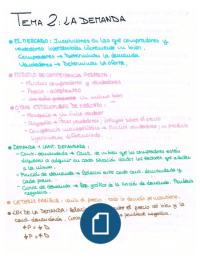 TEMA 2: LA DEMANDA
EL MERCADO: Instituciones en las que compradores y
vendedores intercambian libremente un bien.
Compradores → Determinan la demanda
Vendedores → Determinan la oferta.
MODELO DE COMPETENCIA PERFECTA:
- Muchos compradores y vendedores
- Precio - aceptantes
OTRAS ESTRUCTURAS DE MERCADO:
- Monopolio → Un único vendedor
- Oligopolio → Pocos vendedores, influyen sobre el precio
- Competencia monopolística → Muchos vendedores, un producto
DEMANDA Y CANT. DEMANDADA:
- Cant. demandada → Cant. de un bien que los compradores están
dispuestos a adquirir en cada situación dados los factores que afectan
a la misma.
- Función de demanda → Relación entre cada cant. demandada y
cada precio.
- Curva de demanda → Rep. gráfica de la función de demanda. Pendiente
negativa.
CETERIS PARIBUS: el precio, todo lo demás se mantiene.
LEY DE LA DEMANDA: Relación entre el precio del bien y la
cant. demandada.
↑P → ↓D
↓P → ↑D